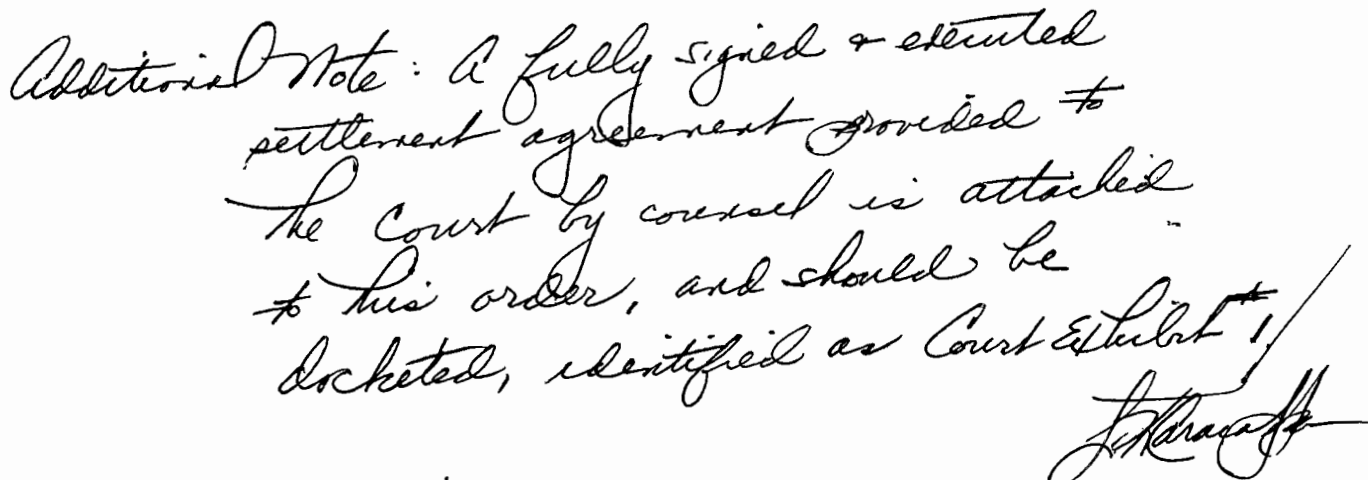 Additional Note: A fully signed & executed
settlement agreement provided to
the Court by counsel is attached
to this order, and should be
docketed, identified as Court Exhibit #1